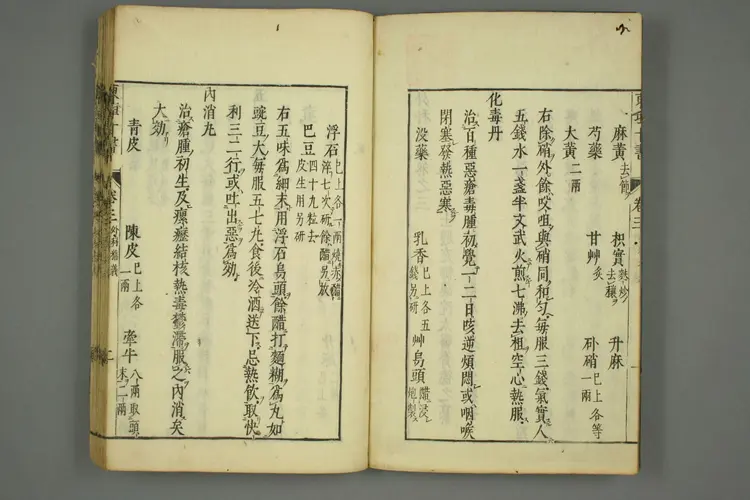 麻黄去節 枳實麩炒去穰 升麻
芍藥 甘艸炙 朴硝巳上各等一兩
大黄二兩
右除硝外餘㕮咀與硝同和匀毎服三錢氣實人
五錢水一盞半文武火煎七沸去柤空心熱服
化毒丹
治百種惡瘡毒腫初覺一二日咳逆煩悶或咽喉
閉塞發熱惡寒
没藥 乳香巳上各五錢另研 艸烏頭醋浸炮製
浮石巳上各一兩燒赤醋淬七次研餘醋另放
巴豆四十九粒去皮生用另研
右五味爲細末用浮石烏頭餘醋打麵糊爲丸如
豌豆大毎服五七丸食後冷酒送下忌熱飲取快
利三二行或吐出惡爲効
内消丸
治瘡腫初生及瘰癧結核熱毒鬱滯服之内消矣
大効
青皮 陳皮巳上各一兩 牽牛八兩取頭末二兩
東垣十書 卷三 外科精義 二